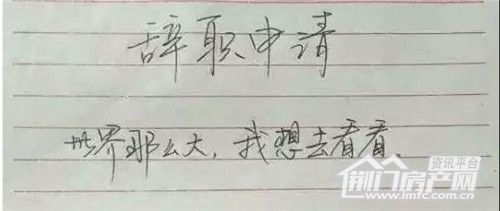 辞职申请
世界那么大，我想去看看。
资讯平台
荆门房产网
www.jmfc.com.cn